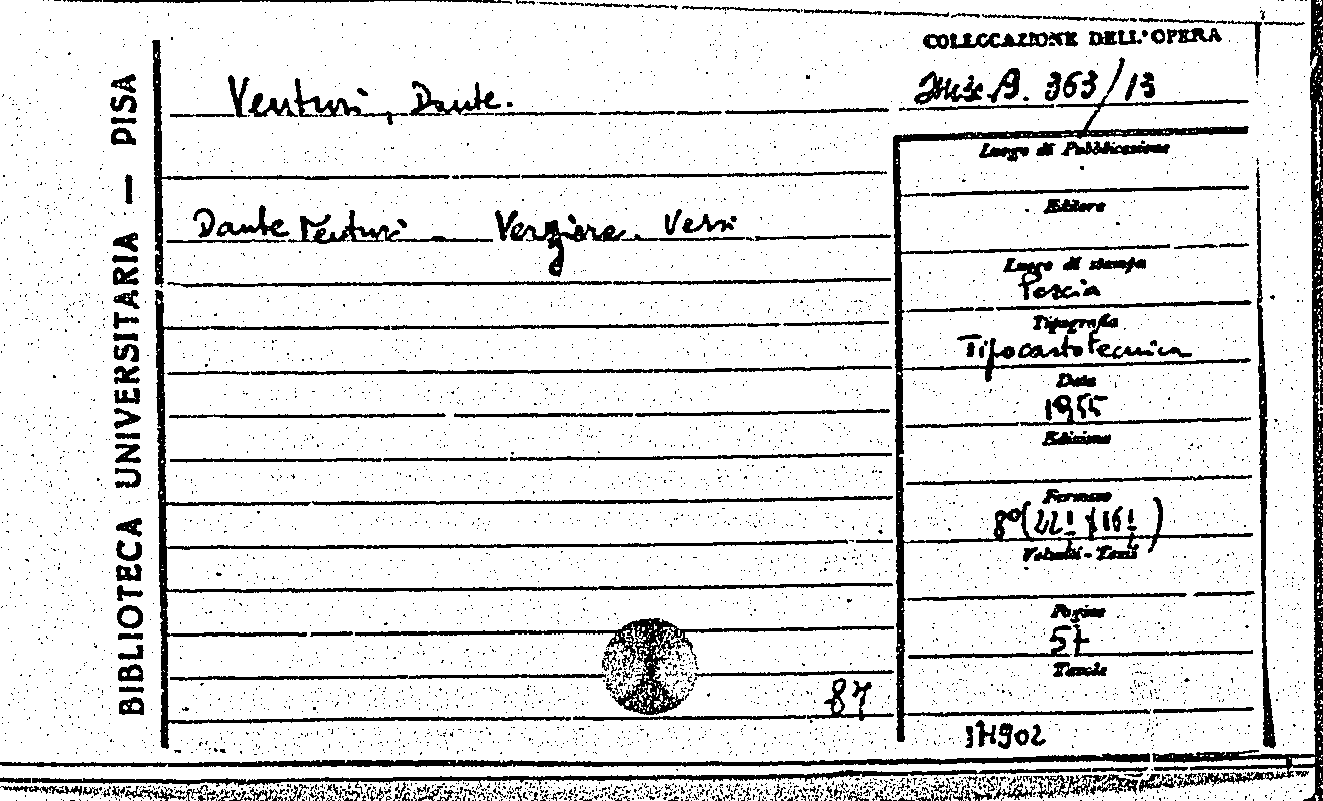 BIBLIOTECA UNIVERSITARIA — PISA
COLLOCAZIONE DELL'OPERA
Venturi, Dante.
Misc. A. 363/13
Luogo di Pubblicazione
Dante Venturi - Verziere. Versi
Editore
Luogo di stampa
Pescia
Tipografia
Tipocartotecnica
Data
1955
Edizione
Formato
8°
Volumi - Tomi
Pagine
57
Tavole
87